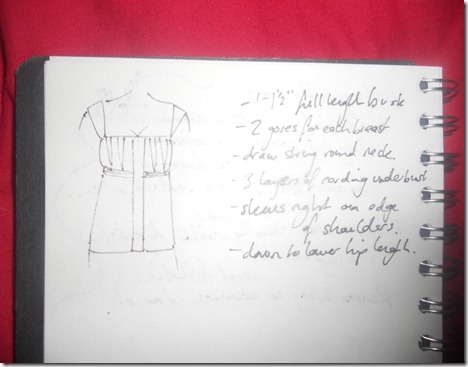 - 1-1½" full length busk
- 2 gores for each breast
- draw string round neck.
- 3 layers of cording underbust
- sleeves right on edge
of shoulders.
- down to lower hip length.